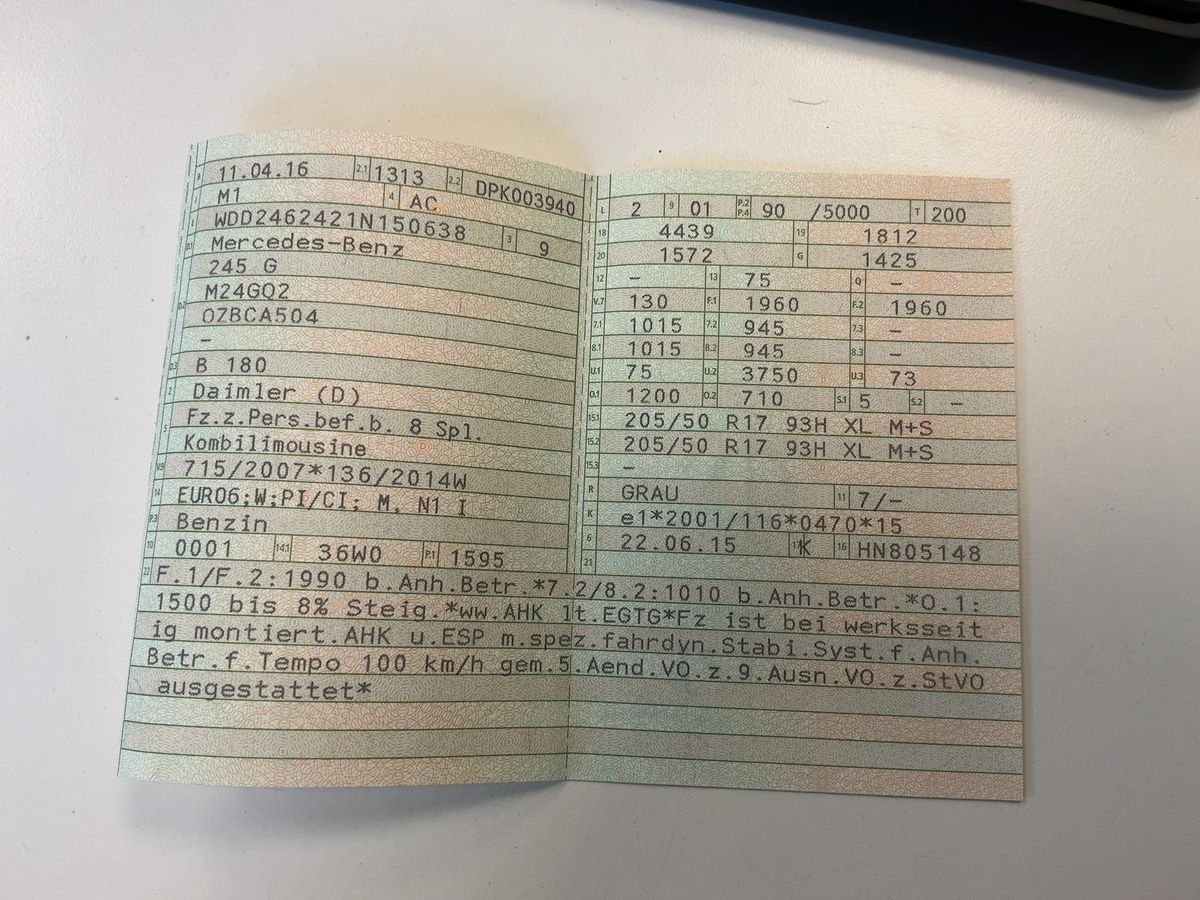 B 11.04.16 2.1 1313 2.2 DPK003940
J M1 4 AC
E WDD2462421N150638 3 9
D.1 Mercedes-Benz
245 G
D.2 M24GQ2
OZBCA504
–
D.3 B 180
2 Daimler (D)
5 Fz.z.Pers.bef.b. 8 Spl.
Kombilimousine
V.9 715/2007*136/2014W
14 EURO6;W;PI/CI; M, N1 I
P.3 Benzin
10 0001 14.1 36W0 P.1 1595
L 2 9 01 P.2 P.4 90 /5000 T 200
18 4439 19 1812
20 1572 G 1425
12 – 13 75 Q –
V.7 130 F.1 1960 F.2 1960
7.1 1015 7.2 945 7.3 –
8.1 1015 8.2 945 8.3 –
U.1 75 U.2 3750 U.3 73
O.1 1200 O.2 710 S.1 5 S.2 –
15.1 205/50 R17 93H XL M+S
15.2 205/50 R17 93H XL M+S
15.3 –
R GRAU 11 7/–
K e1*2001/116*0470*15
6 22.06.15 17 K 16 HN805148
21
22 F.1/F.2:1990 b.Anh.Betr.*7.2/8.2:1010 b.Anh.Betr.*O.1:
1500 bis 8% Steig.*ww.AHK lt.EGTG*Fz ist bei werksseit
ig montiert.AHK u.ESP m.spez.fahrdyn.Stabi.Syst.f.Anh.
Betr.f.Tempo 100 km/h gem.5.Aend.VO.z.9.Ausn.VO.z.StVO
ausgestattet*